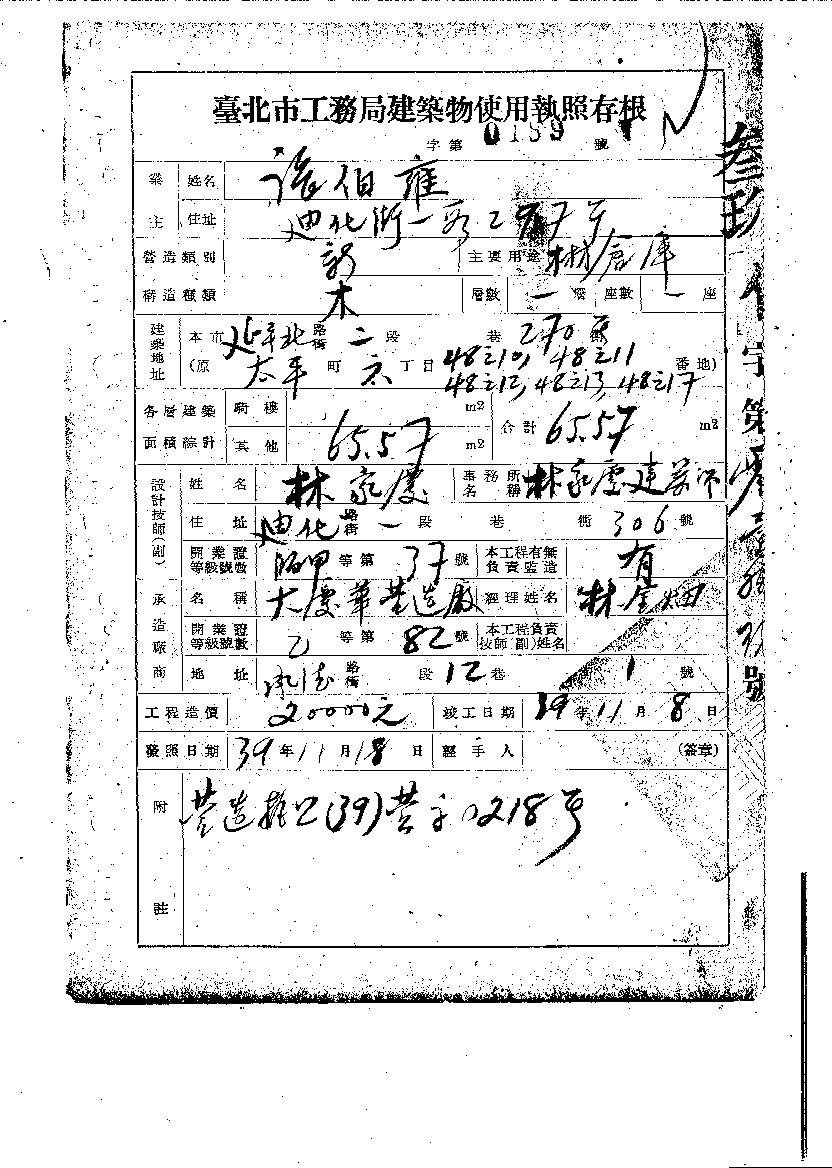 臺北市工務局建築物使用執照存根
字第0159號
業主 姓名 張伯雍
住址 迪化街一段297号
營造類別 新 主要用途 倉庫
構造種類 木 層數 一 層 座數 一 座
建築地址 本市 延平北 路街 二 段 巷 270号 衖
(原 太平 町 六 丁目 48之10, 48之11 番地)
48之12, 48之13, 48之17
各層建築面積綜計 騎樓 m2 合計 65.57 m2
其他 65.57 m2
設計技師(副) 姓名 林家慶 事務所名稱 林家慶建築師
住址 迪化 路街 一 段 巷 衖 306 號
開業證等級號數 甲 等第 37 號 本工程有無負責監造 有
承造廠商 名稱 大慶華營造廠 經理姓名 林金
開業證等級號數 乙 等第 82 號 本工程負責技師(副)姓名
地址 承德 路街 段 12 巷 1 號
工程造價 20000元 竣工日期 39年11月8日
發照日期 39年11月18日 經手人 (簽章)
附註 營造執照(39)營字0218号
叁玖 字第 號